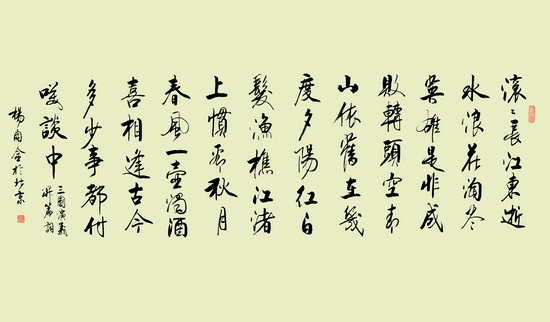 滚〻長江東逝
水浪花淘尽
英雄是非成
敗轉頭空青
山依舊在幾
度夕陽紅白
髮漁樵江渚
上慣看秋月
春風一壺濁酒
喜相逢古今
多少事都付
咲談中
三國演義
開篇詞
楊自全於北京